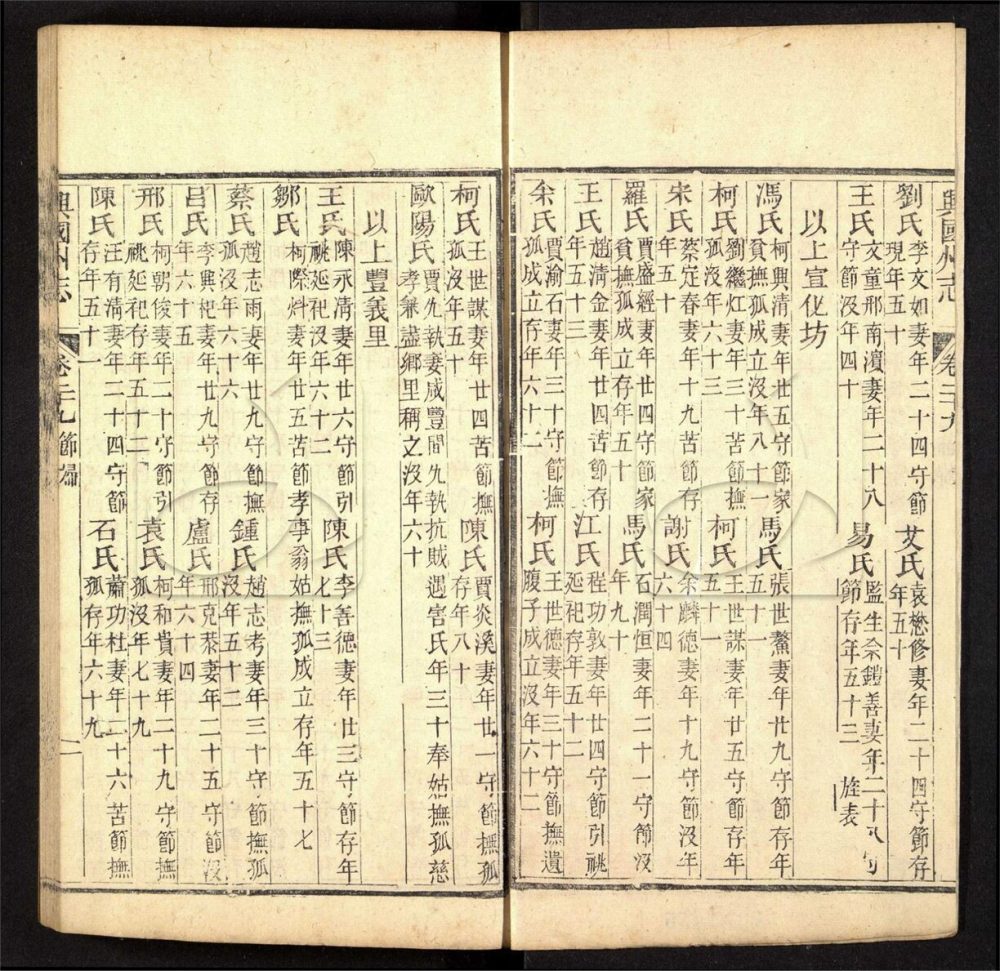 興國州志 卷二十九
劉氏 李文如妻年二十四守節現年五十 艾氏 袁懋修妻年二十四守節存年五十
王氏 文童邢南濱妻年二十八守節沒年四十 易氏 監生余鎧善妻年二十八守節存年五十三 旌表
以上宣化坊
馮氏 柯興清妻年廿五守節家貧撫孤成立沒年八十一 馬氏 張世鰲妻年廿九守節存年五十一
柯氏 劉繼灴妻年三十苦節撫孤沒年六十三 柯氏 王世謀妻年廿五守節存年五十一
宋氏 蔡定春妻年十九苦節存年五十 謝氏 余麟德妻年十九守節沒年六十四
羅氏 賈盛經妻年廿四守節家貧撫孤成立存年五十 馬氏 石潤恒妻年二十一守節沒年九十
王氏 趙清金妻年廿四苦節存年五十三 江氏 程功敦妻年廿四守節引祧延祀存年五十二
余氏 賈渝石妻年三十守節撫孤成立存年六十二 柯氏 王世德妻年三十守節撫遺腹子成立沒年六十二
柯氏 王世謀妻年廿四苦節撫孤沒年五十 陳氏 賈炎溪妻年廿一守節撫孤存年八十
歐陽氏 賈允執妻咸豐間允執抗賊遇害氏年三十奉姑撫孤慈孝兼盡鄉里稱之沒年六十
以上豐義里
王氏 陳永清妻年廿六守節引祧延祀沒年六十二 陳氏 李善德妻年廿三守節存年七十三
鄒氏 柯際炓妻年廿五苦節孝事翁姑撫孤成立存年五十七
蔡氏 趙志雨妻年廿九守節撫孤沒年六十六 鍾氏 趙志考妻年三十守節撫孤沒年五十二
呂氏 李興杞妻年廿九守節存年六十五 盧氏 邢克恭妻年二十五守節沒年六十四
邢氏 柯朝俊妻年二十守節引祧延祀存年五十二 袁氏 柯和貴妻年二十九守節撫孤沒年七十九
陳氏 汪有清妻年二十四守節存年五十一 石氏 蕭功杜妻年二十六苦節撫孤存年六十九
興國州志 卷二十九 節婦 二